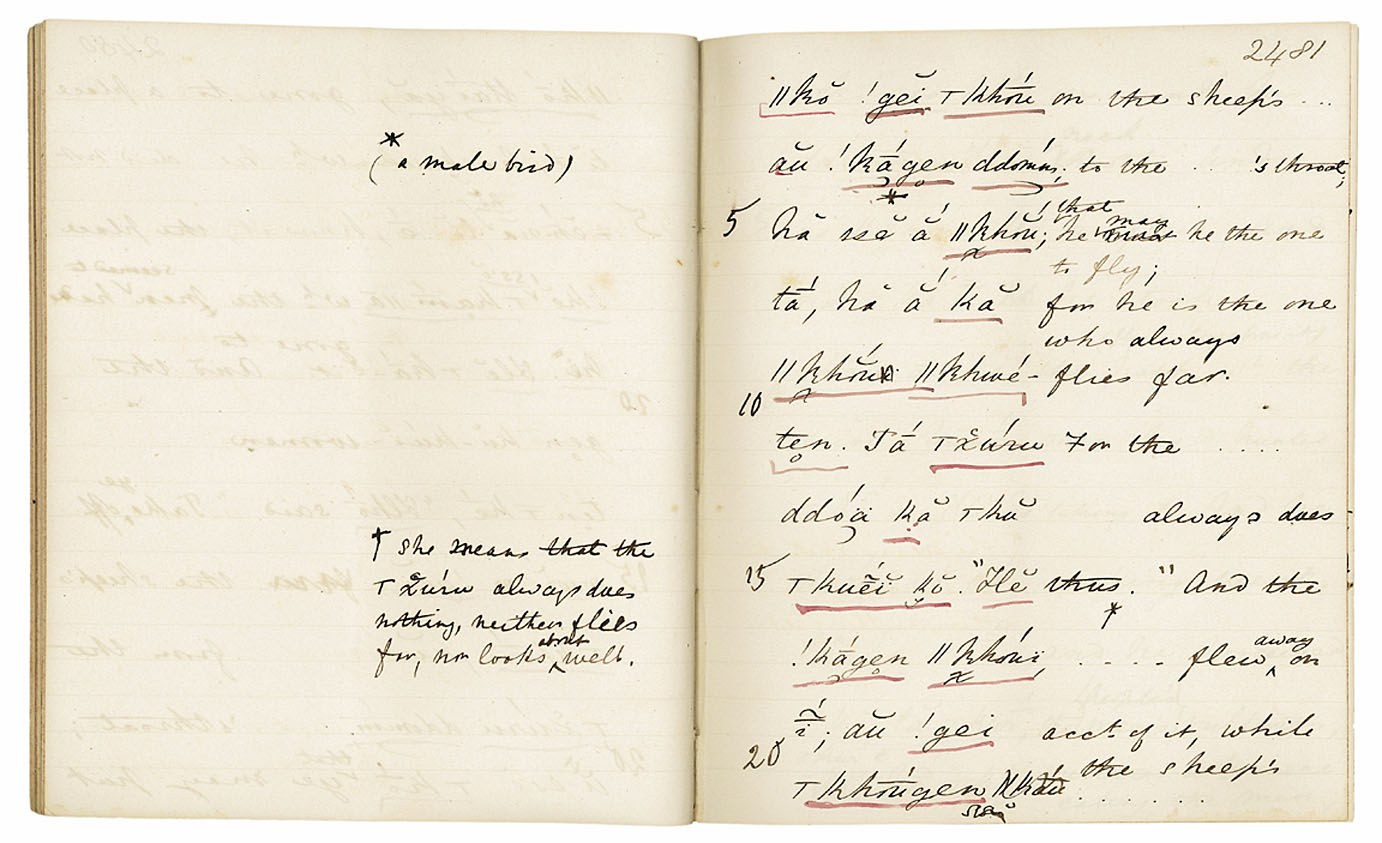 *
(a male bird)
† she means that the
⊤ẓ̌úru always does
nothing, neither flies
far, nor looks about well.
2481
ǁkŏ !gĕi ⊤khóu on the sheep's ...
aŭ !kágen ddómm; to the . . 's throat;
*
5 hă ssĕ ắ ǁkhŏu; that he may be the one
to fly;
tá, hă ắ kă for he is the one
who always
ǁkhŏui ǁkhwé- flies far.
10
ten. Tá ⊤ẓ̌úru For the ....
ddóai kă ⊤kŭ always does
15 ⊤kuĕĭ kŏ. "Hĕ thus." And the
*
!kágen ǁkhóui, .... flew away on
ĭ; aŭ !gei acct. of it, while
20 the sheep's
⊤khóugen .......